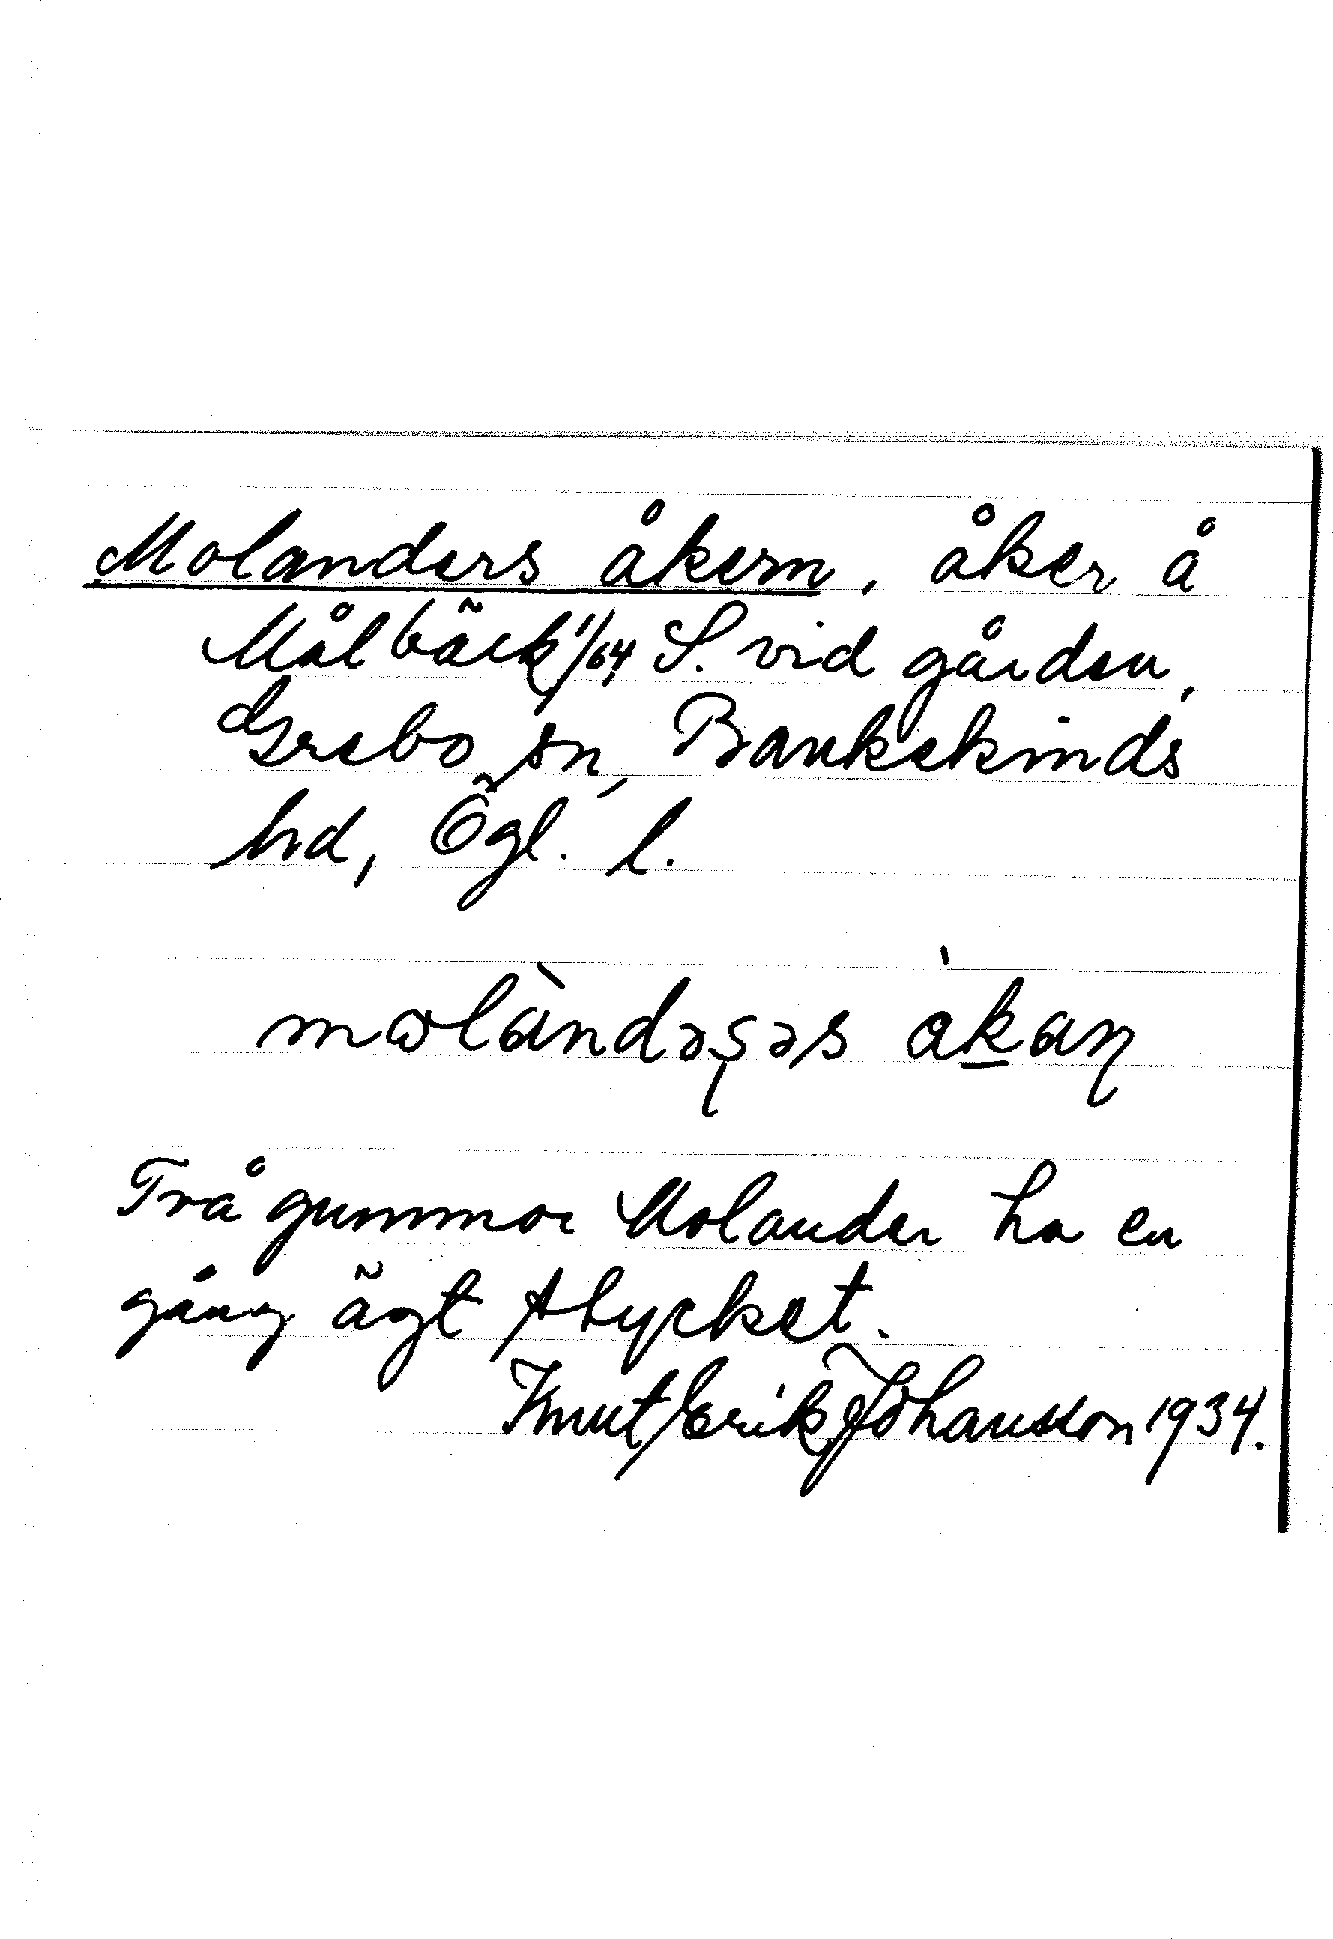 Molanders åkern, åker å
Målbäck 1/64 S. vid gården,
Grebo sn, Bankekinds
hd, Ögl. l.
məlàndəʂəs àkaɳ
Två gummor Molander ha en
gång ägt stycket.
Knut Erik Johansson 1934.